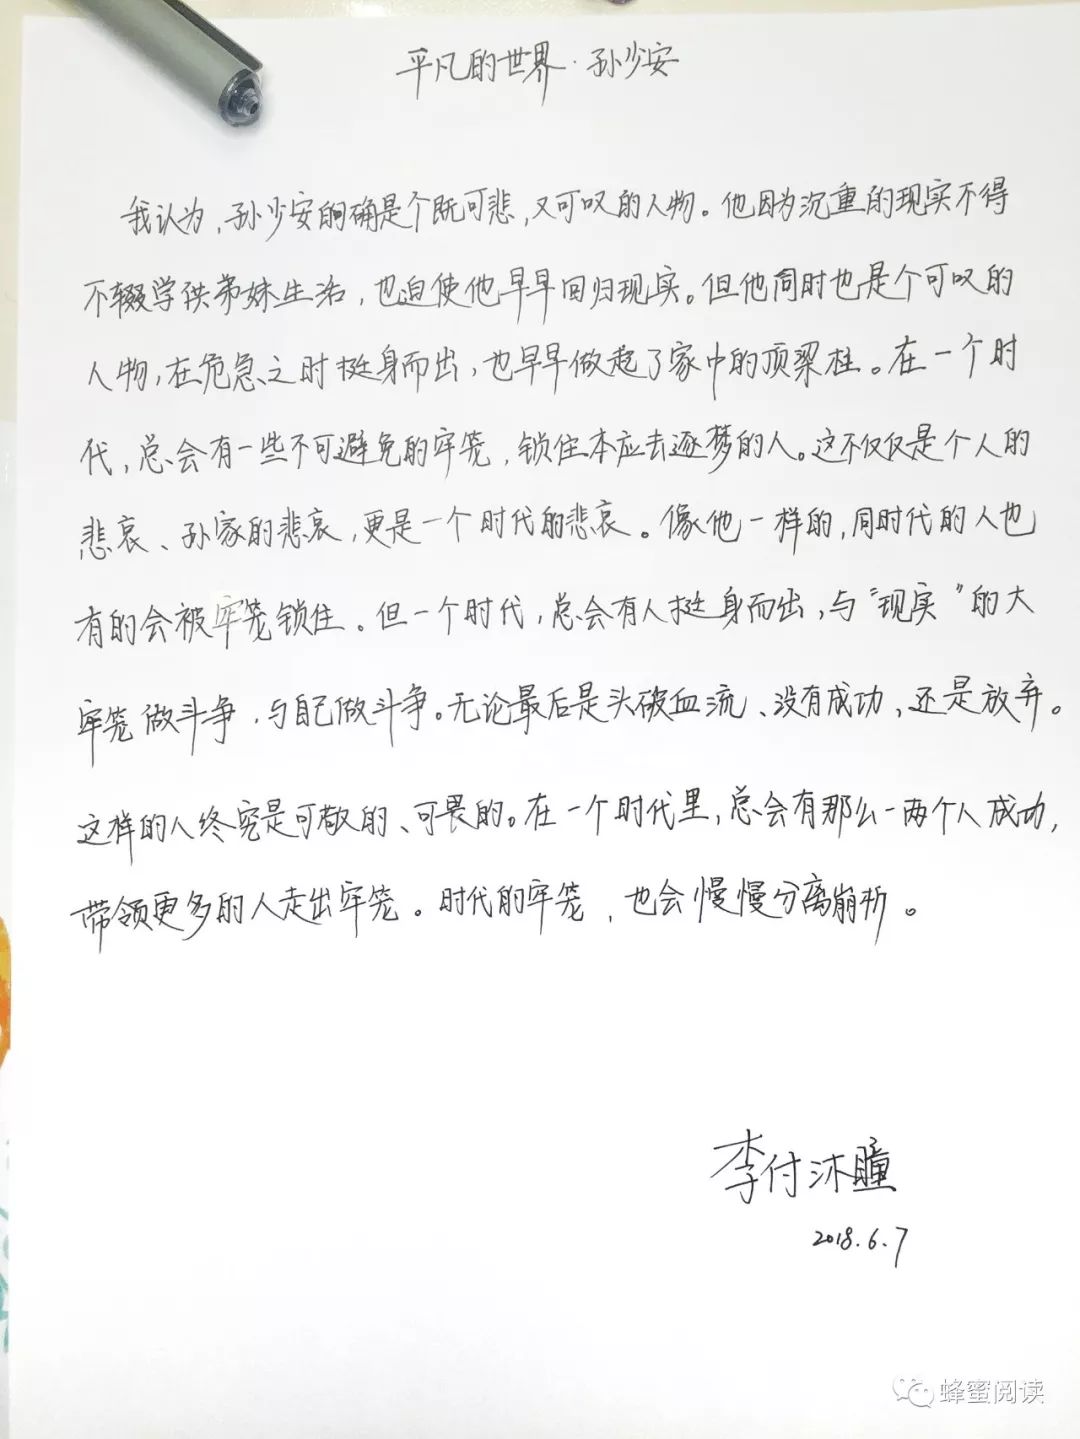 平凡的世界·孙少安
我认为，孙少安的确是个既可悲，又可叹的人物。他因为沉重的现实不得
不辍学供弟妹生活，也迫使他早早回归现实。但他同时也是个可叹的
人物，在危急之时挺身而出，也早早做起了家中的顶梁柱。在一个时
代，总会有一些不可避免的牢笼，锁住本应去逐梦的人。这不仅仅是个人的
悲哀、孙家的悲哀，更是一个时代的悲哀。像他一样的，同时代的人也
有的会被牢笼锁住。但一个时代，总会有人挺身而出，与“现实”的大
牢笼做斗争，与自己做斗争。无论最后是头破血流、没有成功，还是放弃。
这样的人终究是可敬的、可畏的。在一个时代里，总会有那么一两个人成功，
带领更多的人走出牢笼。时代的牢笼，也会慢慢分离崩析。
李付沐瞳
2018.6.7
蜂蜜阅读